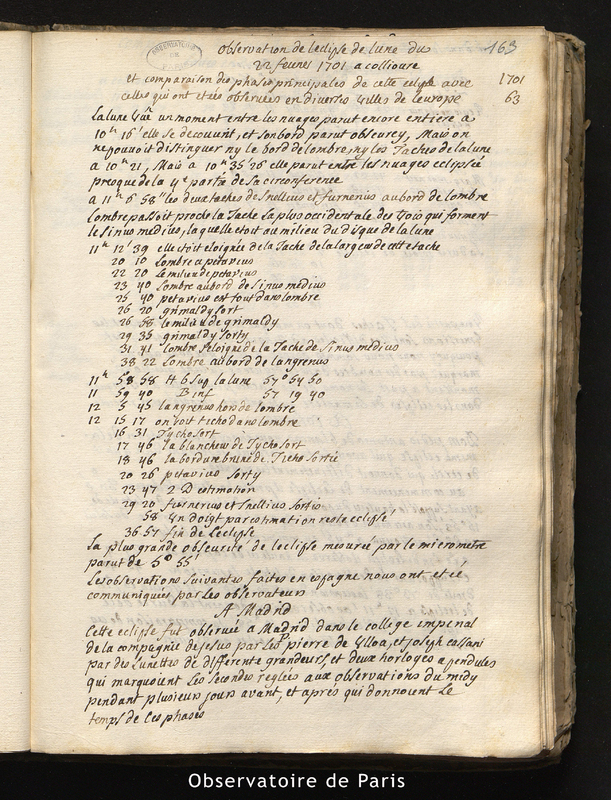 observation de leclipse de lune du
22 feurier 1701 a collioure
163
et comparaison des phases principales de cette eclipse avec
celles qui ont etées observées en diverses villes de leurope
1701
63
OBSERVATOIRE DE PARIS
la lune un moment entre les nuages parut encore entiere a
10h 16' elle se decouurit, et son bord parut obscurcy, Mais on
ne pouvoit distinguer ny le bord de lombre, ny les Taches de la lune
a 10h 21, Mais a 10h 35' 26 elle parut entre les nuages eclipsé
presque de la 4e partie de sa circonference
a 11h 6' 58" les deux taches de Snellius et furnerius au bord de lombre
lombre passoit proche la Tache la plus occidentale des trois qui forment
le sinus medius, laquelle etoit au milieu du disque de la lune
11h 12' 39 elle etoit eloignée de la Tache de la largeur de cette tache
20 10 lombre a petavius
22 20 le milieu de petavius
23 40 lombre au bord de sinus medius
25 40 petavius est tout dans lombre
26 20 grimaldy sort
26 58 le milieu de grimaldy
29 35 grimaldy sorty
31 41 lombre seloigne de la Tache de sinus medius
38 22 lombre au bord de langrenus
11h 58 58 H b sup la lune 57° 54 50
11 59 40 B inf 57 19 40
12 5 45 langrenus hors de lombre
12 15 17 on voit ticho dans lombre
16 31 Tycho sort
17 46 la blancheur de Tycho sort
18 46 la bordure brune de Ticho sortie
20 26 petavius sorty
23 47 2 D estimation
29 20 furnerius et snellius sortis
58 un doigt par estimation reste eclipsé
36 57 fin de leclipse
La plus grande obscurité de leclipse mesuré par le micrometre
parut de 5° 55'
les observations suivantes faites en espagne nous ont etée
communiquées par les observateurs
A Madrid
Cette eclipse fut observée a Madrid dans le college imperial
de la compagnie de jesus par les P pierre de Ulloa, et joseph cassani
par des lunettes de differente grandeurs, et deux horloges a pendules
qui marquoient les secondes reglées aux observations du midy
pendant plusieurs jours avant, et après qui donnoient le
temps de ces phases
Observatoire de Paris